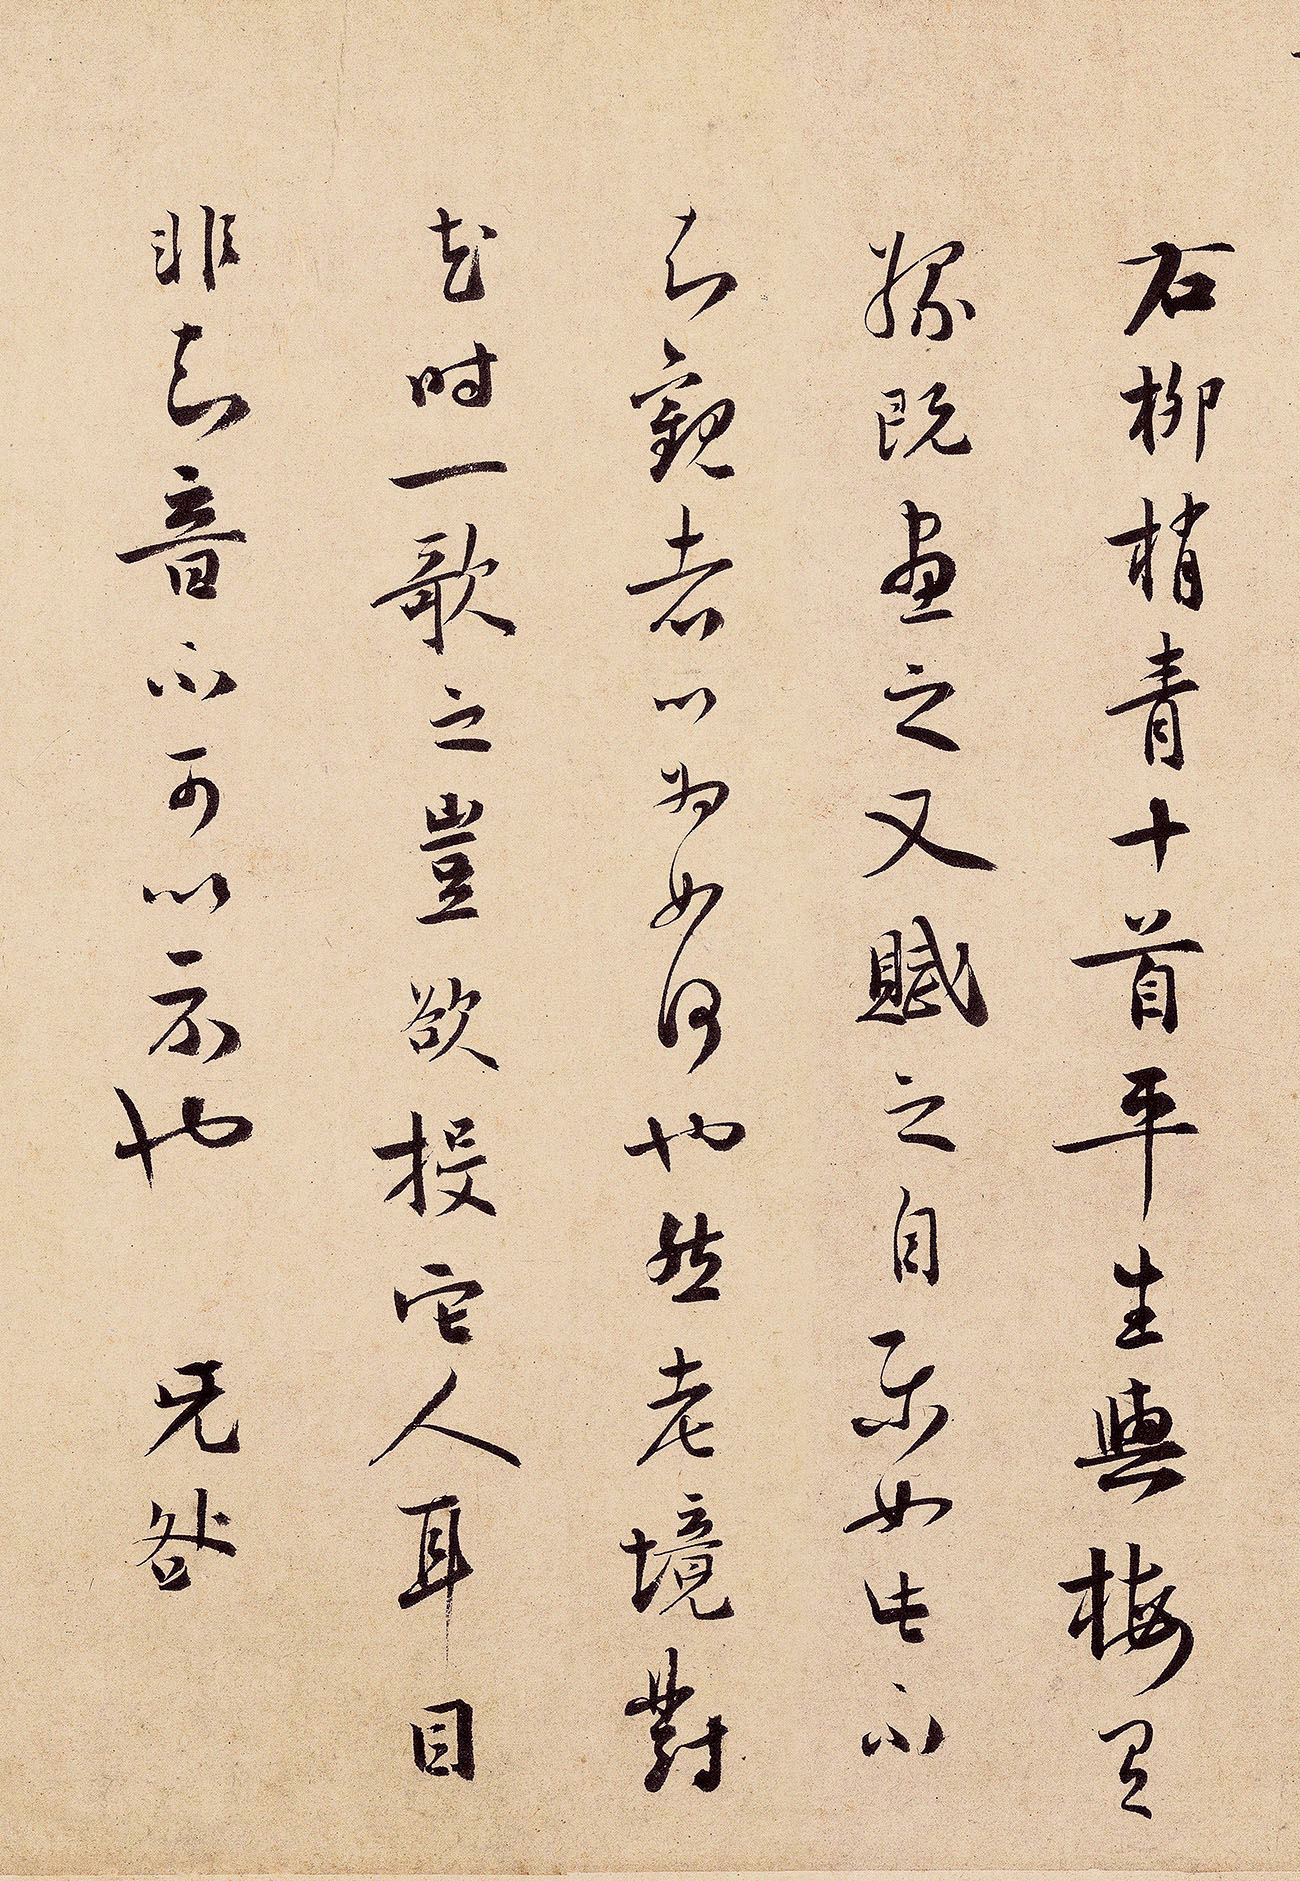 右柳梢青十首平生與梅有
緣既畫之又賦之自樂如此不
知觀者以為如何也然老境對
花時一歌之豈欲投它人耳目
非知音不可以示也 旡咎